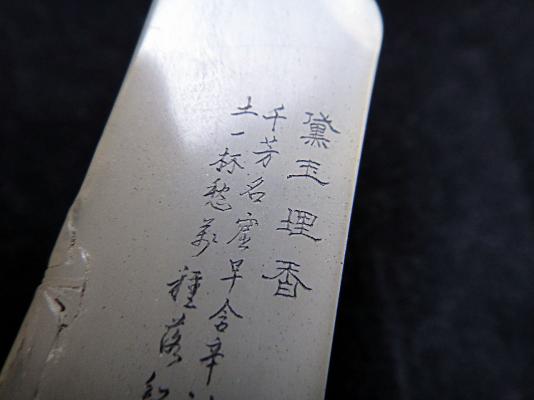 黛玉埋香
千芳名窟早含辛
土一抔愁萬種落